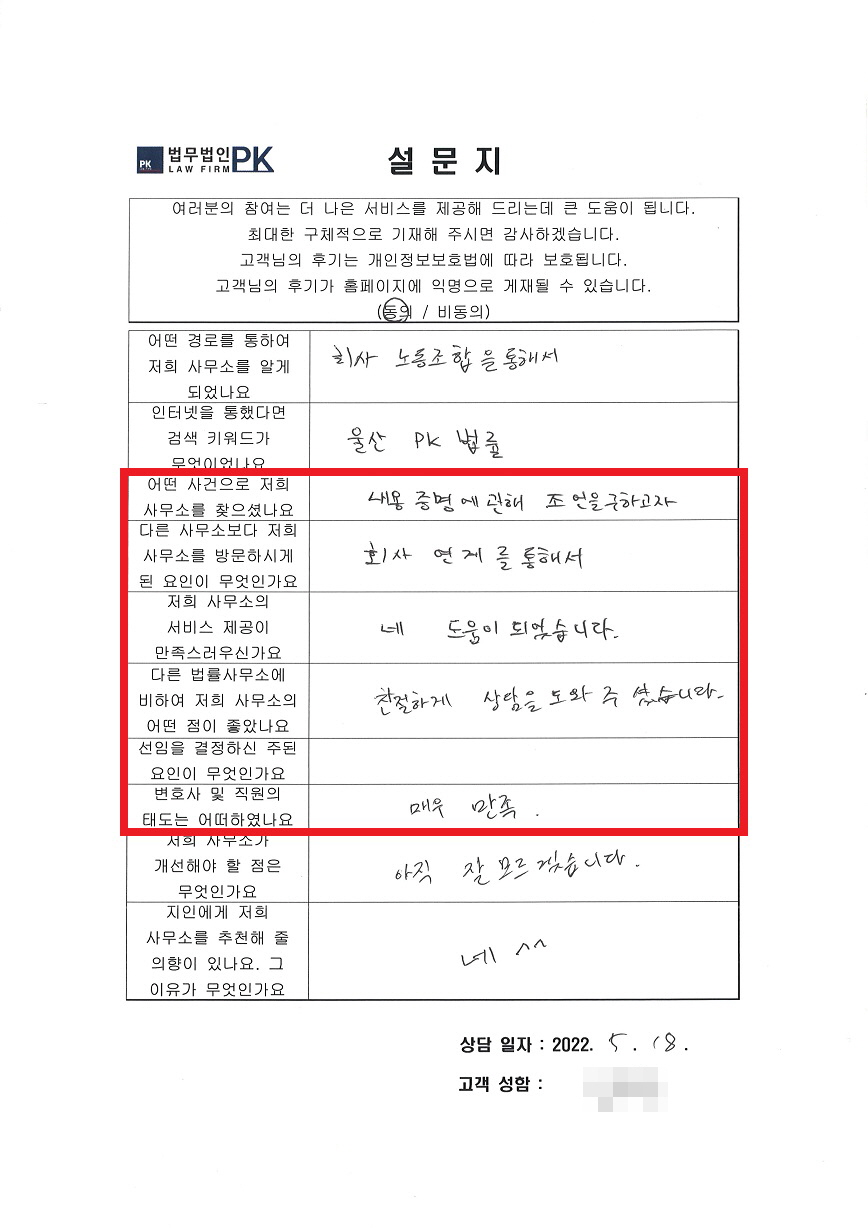 PK 법무법인PK
LAW FIRM
설 문 지
여러분의 참여는 더 나은 서비스를 제공해 드리는데 큰 도움이 됩니다.
최대한 구체적으로 기재해 주시면 감사하겠습니다.
고객님의 후기는 개인정보보호법에 따라 보호됩니다.
고객님의 후기가 홈페이지에 익명으로 게재될 수 있습니다.
(동의 / 비동의)
어떤 경로를 통하여
저희 사무소를 알게
되었나요
회사 노동조합을 통해서
인터넷을 통했다면
검색 키워드가
무엇이었나요
울산 PK 법률
어떤 사건으로 저희
사무소를 찾으셨나요
내용 증명에 관해 조언을 구하고자
다른 사무소보다 저희
사무소를 방문하시게
된 요인이 무엇인가요
회사 연계를 통해서
저희 사무소의
서비스 제공이
만족스러우신가요
네 도움이 되었습니다.
다른 법률사무소에
비하여 저희 사무소의
어떤 점이 좋았나요
친절하게 상담을 도와 주셨습니다.
선임을 결정하신 주된
요인이 무엇인가요
변호사 및 직원의
태도는 어떠하였나요
매우 만족.
저희 사무소가
개선해야 할 점은
무엇인가요
아직 잘 모르겠습니다.
지인에게 저희
사무소를 추천해 줄
의향이 있나요. 그
이유가 무엇인가요
네 ^^
상담 일자 : 2022. 5. 18.
고객 성함 :